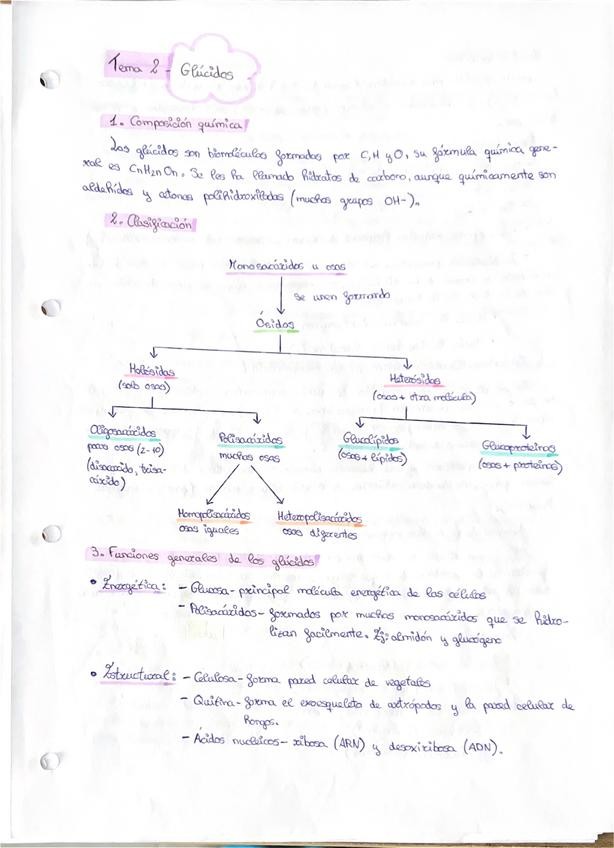 Tema 2 - Glúcidos
1. Composición química
Los glúcidos son biomoléculas formadas por C, H y O, su fórmula química gene-
ral es CnH2nOn. Se les ha llamado hidratos de carbono, aunque químicamente son
aldehídos y cetonas polihidroxilados (muchos grupos OH-).
2. Clasificación
Monosacáridos u osas
se unen formando
Ósidos
Holósidos
Heterósidos
(solo osas)
(osas + otra molécula)
Oligosacáridos
Polisacáridos
Glucolípidos
Glucoproteínas
pocas osas (2-10)
muchas osas
(osas + lípidos)
(osas + proteínas)
(disacárido, trisa-
cárido)
Homopolisacáridos
Heteropolisacáridos
osas iguales
osas diferentes
3. Funciones generales de los glúcidos
• Energética: - Glucosa - principal molécula energética de las células
- Polisacáridos - formados por muchos monosacáridos que se hidro-
lizan facilmente. Ej: almidón y glucógeno
• Estructural: - Celulosa - forma pared celular de vegetales
- Quitina - forma el exoesqueleto de artrópodos y la pared celular de
hongos.
- Ácidos nucleicos - ribosa (ARN) y desoxiribosa (ADN).